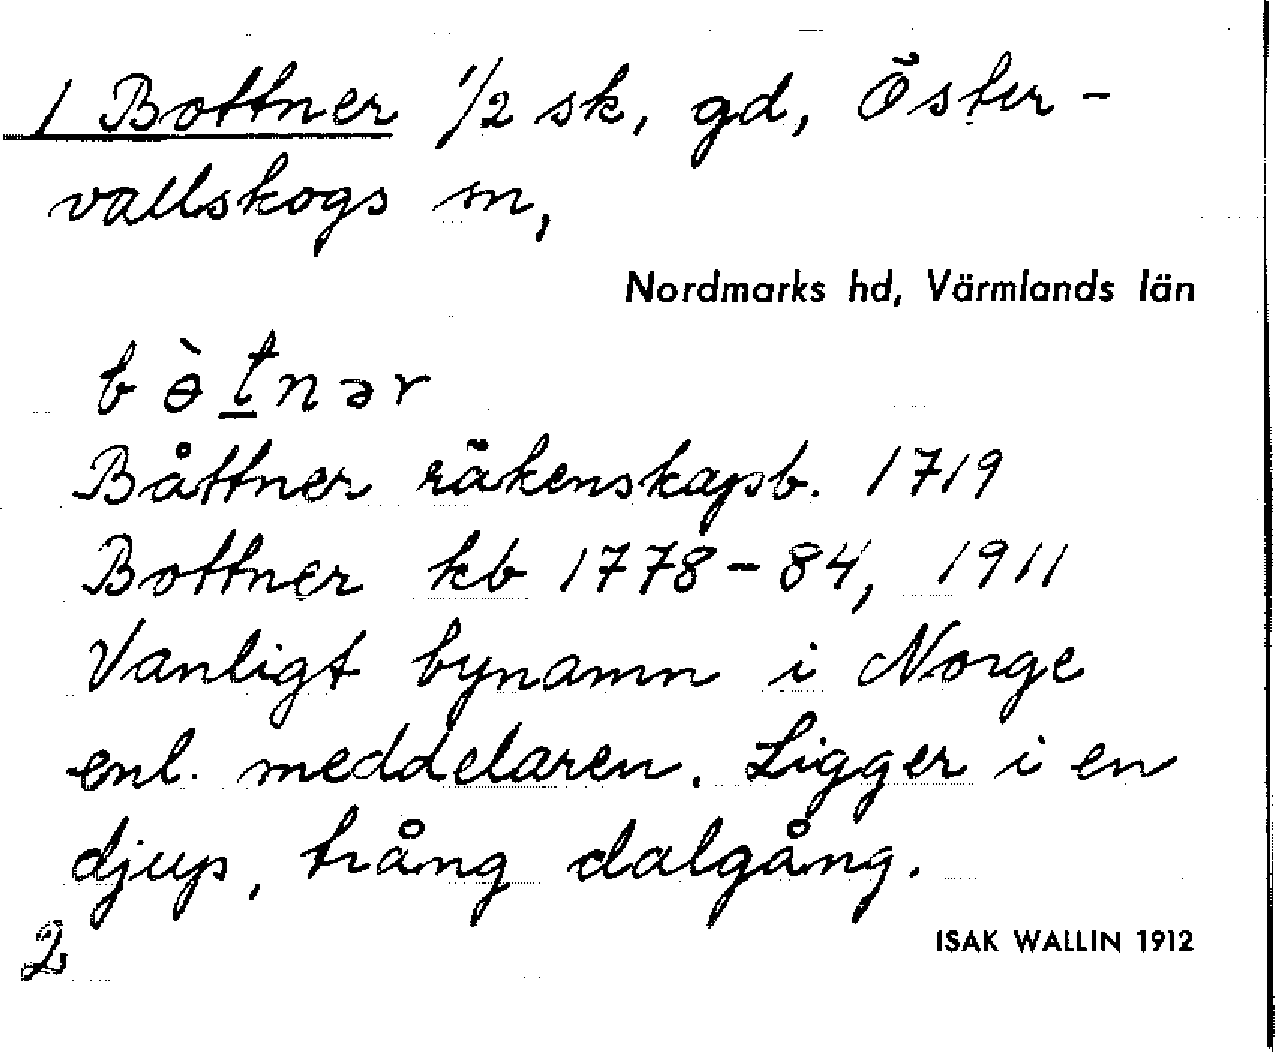 1 Bottner 1/2 sk, gd, Öster-
vallskogs sn,
Nordmarks hd, Värmlands län
bɵ̀tnər
Båttner räkenskapsb. 1719
Bottner kb 1778-84, 1911
Vanligt bynamn i Norge
enl. meddelaren. Ligger i en
djup, trång dalgång.
2
ISAK WALLIN 1912